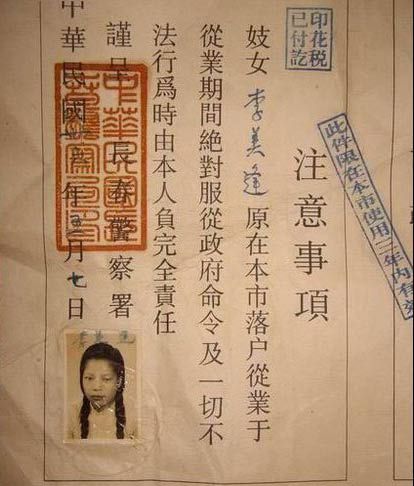 印花税
已付訖
此件限在本市使用三年内有效
注意事項
妓女 李美逢 原在本市落户從業于
從業期間絕對服從政府命令及一切不
法行爲時由本人負完全責任
謹呈 長春警察署
中華民國 年五月七日
中華民國
李美